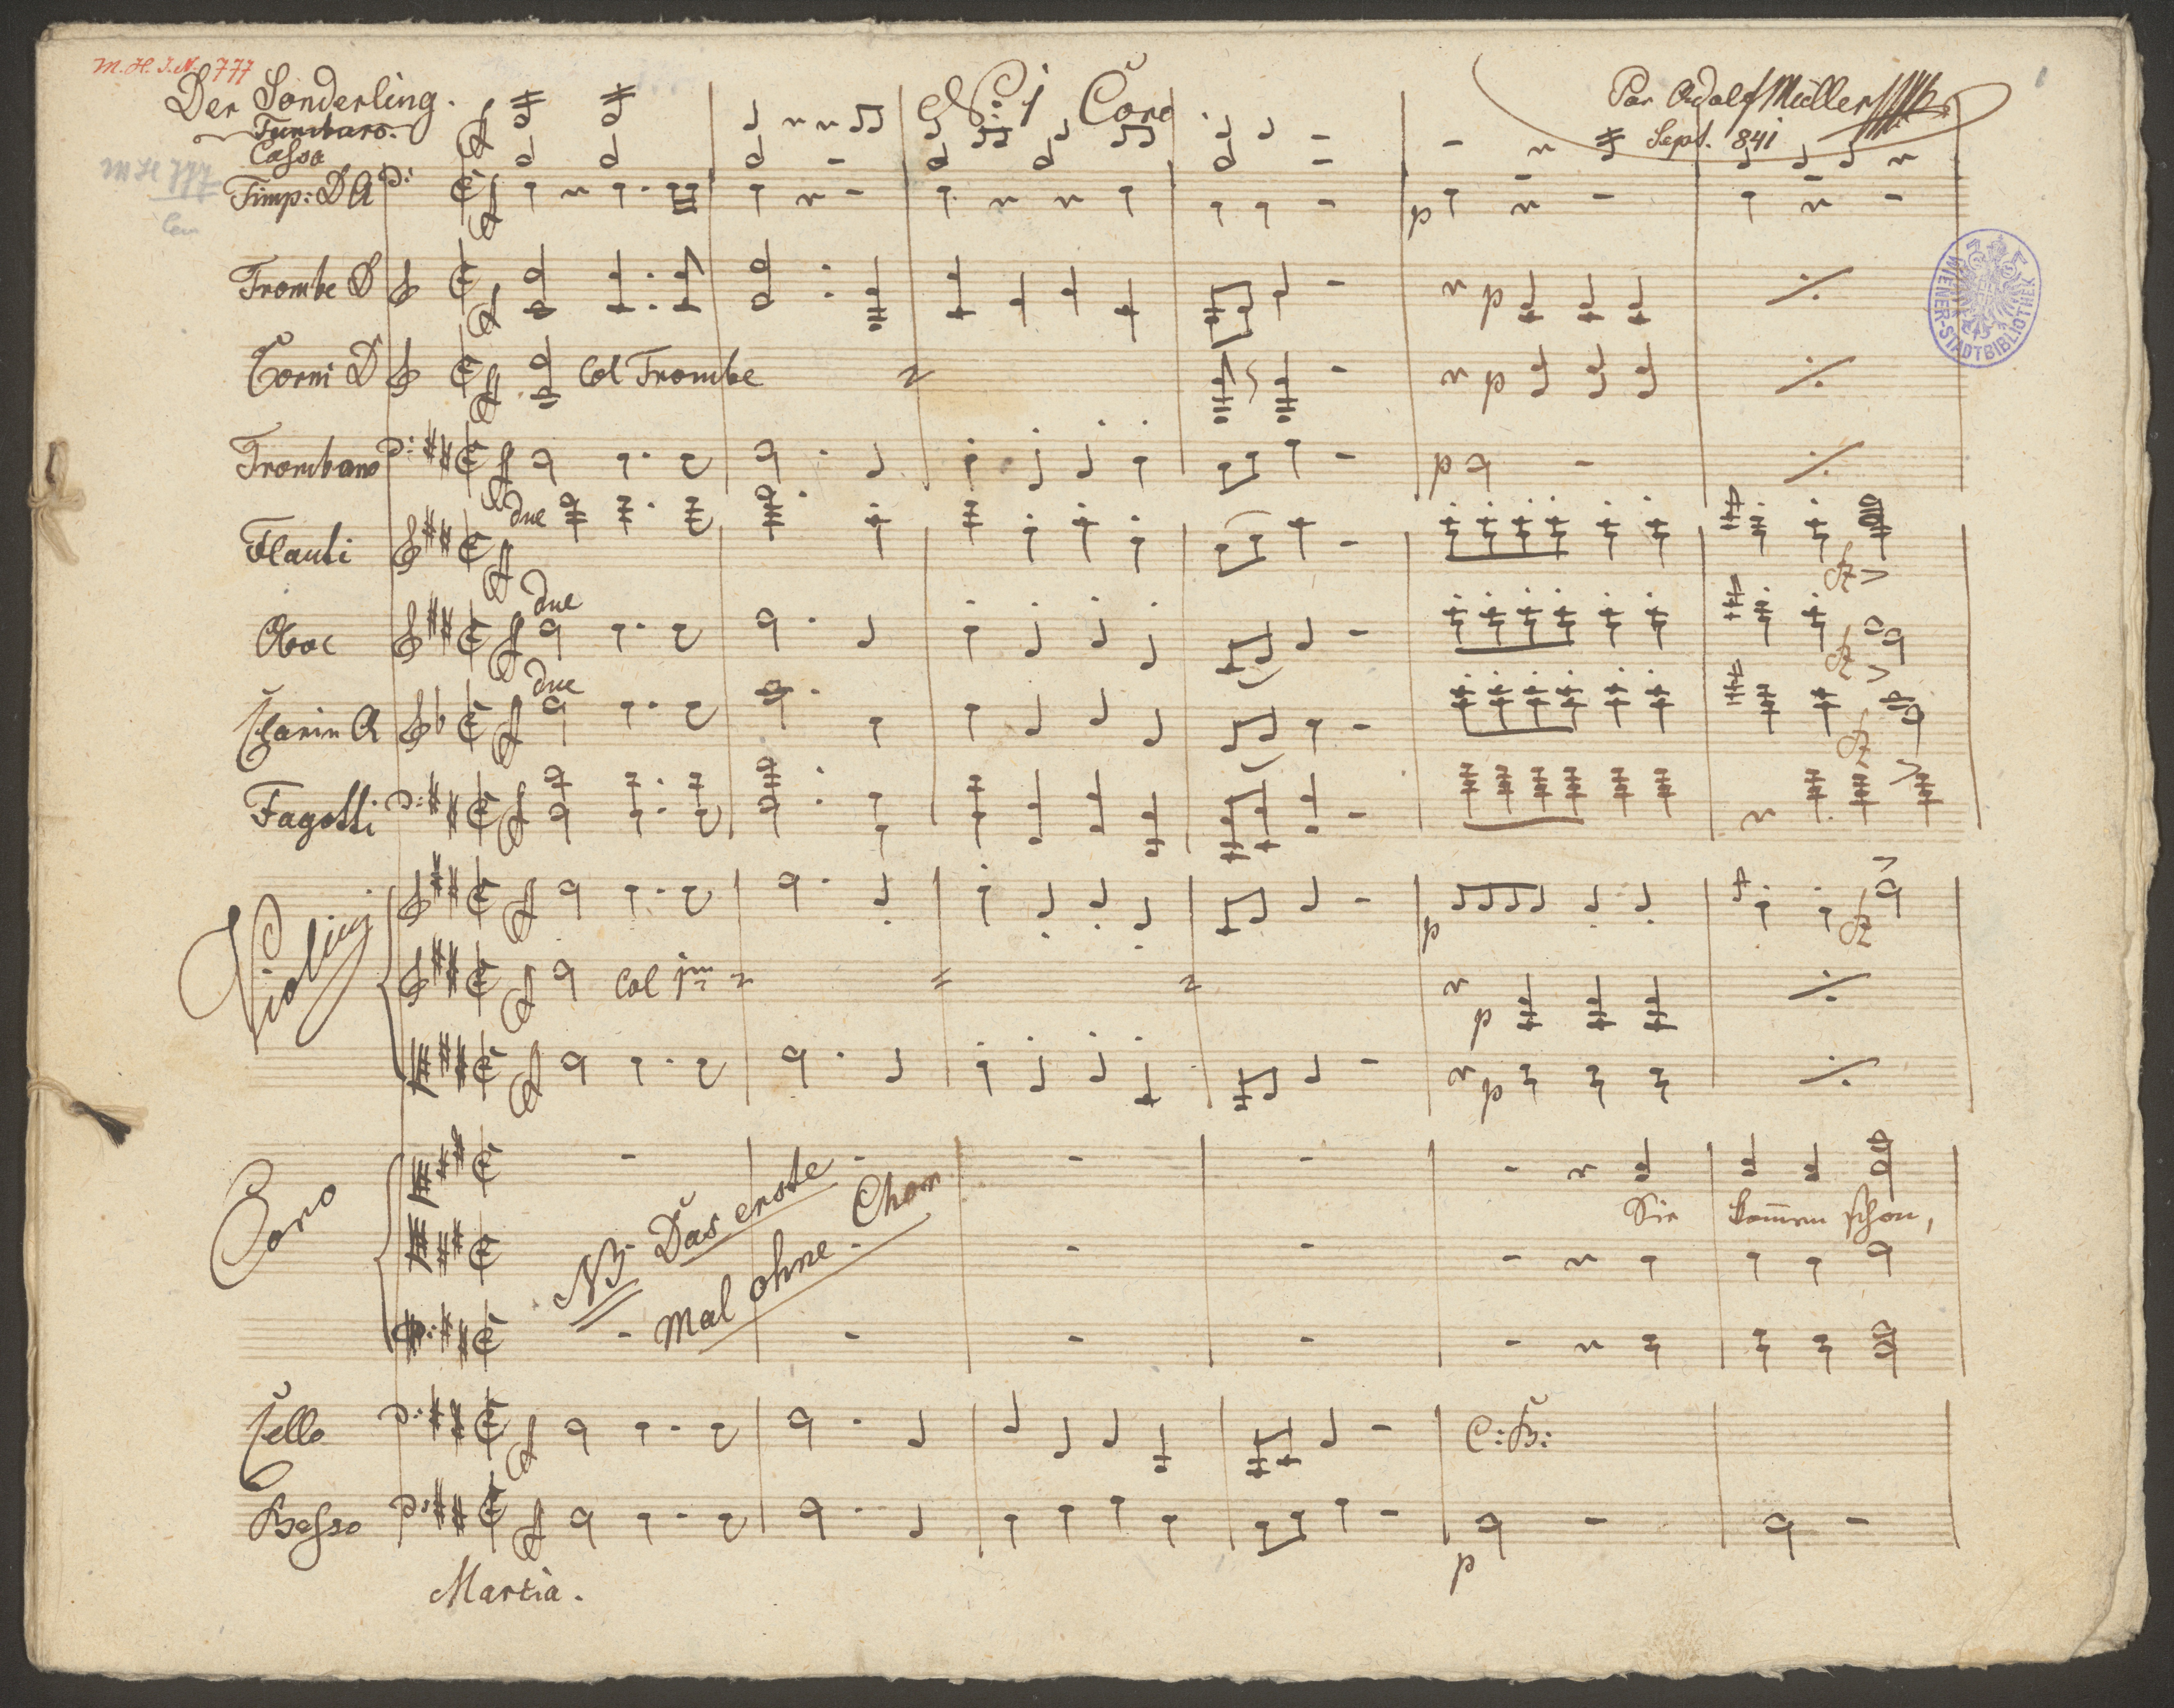 M. H. I. N. 777
Der Sonderling.
No: 1 Coro.
Par Adolf Müller
Sept. 841
M H 777
WIENER-STADTBIBLIOTHEK
Tamburo.
Cassa
Timp: D A
Trombe D
Corni D
Col Trombe
p
Trombano
p
due
Flauti
fz
due
Oboe
fz
due
Clarin A
fz
Fagotti
Violini
p
fz
Col 1mo
p
p
Coro
NB. Das erste
mal ohne Chor
Sie kommen schon,
Cello
C: B:
Basso
p
Martia.